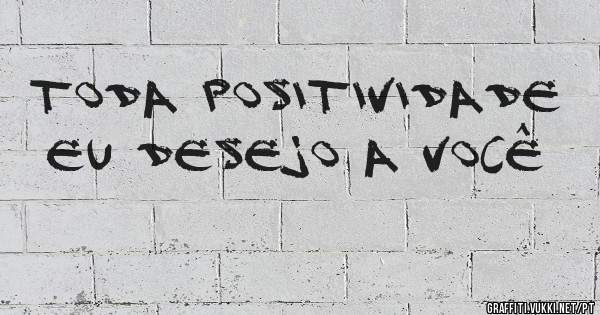 TODA POSITIVIDADE
EU DESEJO A VOCÊ
GRAFFITI.VUKKI.NET/PT